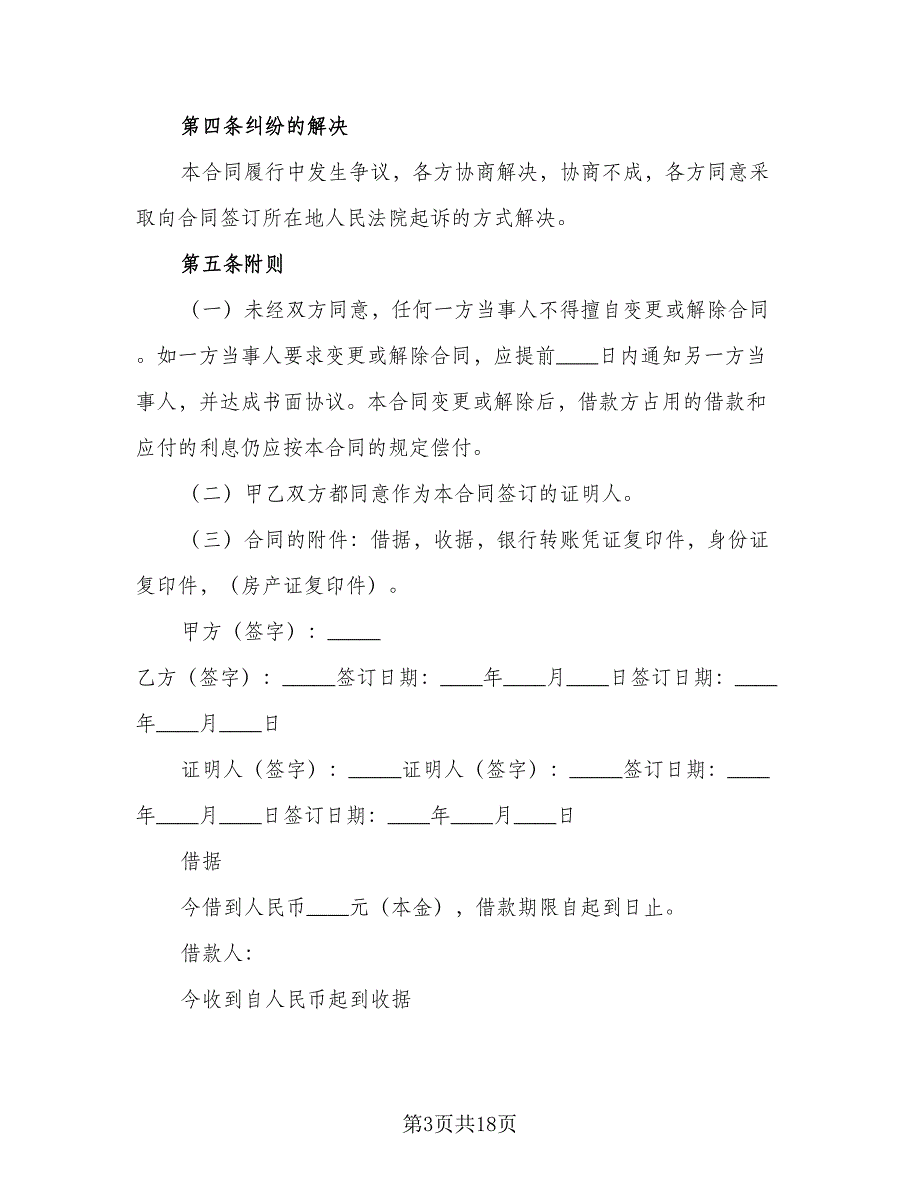 第四条纠纷的解决
本合同履行中发生争议，各方协商解决，协商不成，各方同意采
取向合同签订所在地人民法院起诉的方式解决。
第五条附则
（一）未经双方同意，任何一方当事人不得擅自变更或解除合同
。如一方当事人要求变更或解除合同，应提前____日内通知另一方当
事人，并达成书面协议。本合同变更或解除后，借款方占用的借款和
应付的利息仍应按本合同的规定偿付。
（二）甲乙双方都同意作为本合同签订的证明人。
（三）合同的附件：借据，收据，银行转账凭证复印件，身份证
复印件，（房产证复印件）。
甲方（签字）：_____
乙方（签字）：_____签订日期：____年____月____日签订日期：____
年____月____日
证明人（签字）：_____证明人（签字）：_____签订日期：____
年____月____日签订日期：____年____月____日
借据
今借到人民币____元（本金），借款期限自起到日止。
借款人：
今收到自人民币起到收据
第3页共18页